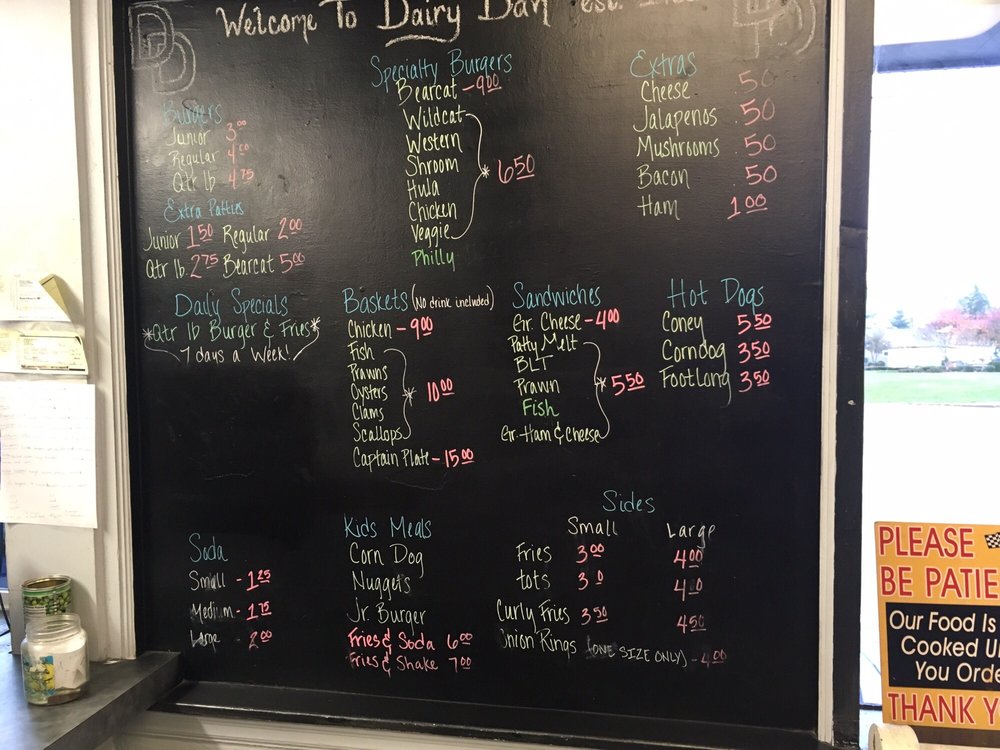 Welcome To Dairy Dan est.
DD
DD
Burgers
Junior 3.00
Regular 4.00
Qtr lb 4.75
Extra Patties
Junior 1.50 Regular 2.00
Qtr lb. 2.75 Bearcat 5.00
Specialty Burgers
Bearcat - 9.00
Wildcat
Western
Shroom
Hula
Chicken
Veggie
* 6.50
Philly
Extras
Cheese .50
Jalapenos .50
Mushrooms .50
Bacon .50
Ham 1.00
Daily Specials
*Qtr lb Burger & Fries*
7 days a Week!
Baskets (No drink included)
Chicken - 9.00
Fish
Prawns
Oysters
Clams
Scallops
* 10.00
Captain Plate - 15.00
Sandwiches
Gr. Cheese - 4.00
Patty Melt
BLT
Prawn
Fish
Gr. Ham & Cheese
* 5.50
Hot Dogs
Coney 5.50
Corndog 3.50
Footlong 3.50
Soda
Small - 1.25
Medium - 1.75
Large - 2.00
Kids Meals
Corn Dog
Nuggets
Jr. Burger
Fries & Soda 6.00
Fries & Shake 7.00
Sides
Small Large
Fries 3.00 4.00
tots 3.0 4.00
Curly Fries 3.50 4.50
Onion Rings (ONE SIZE ONLY) - 4.00
PLEASE
BE PATIE
Our Food Is
Cooked U
You Orde
THANK Y